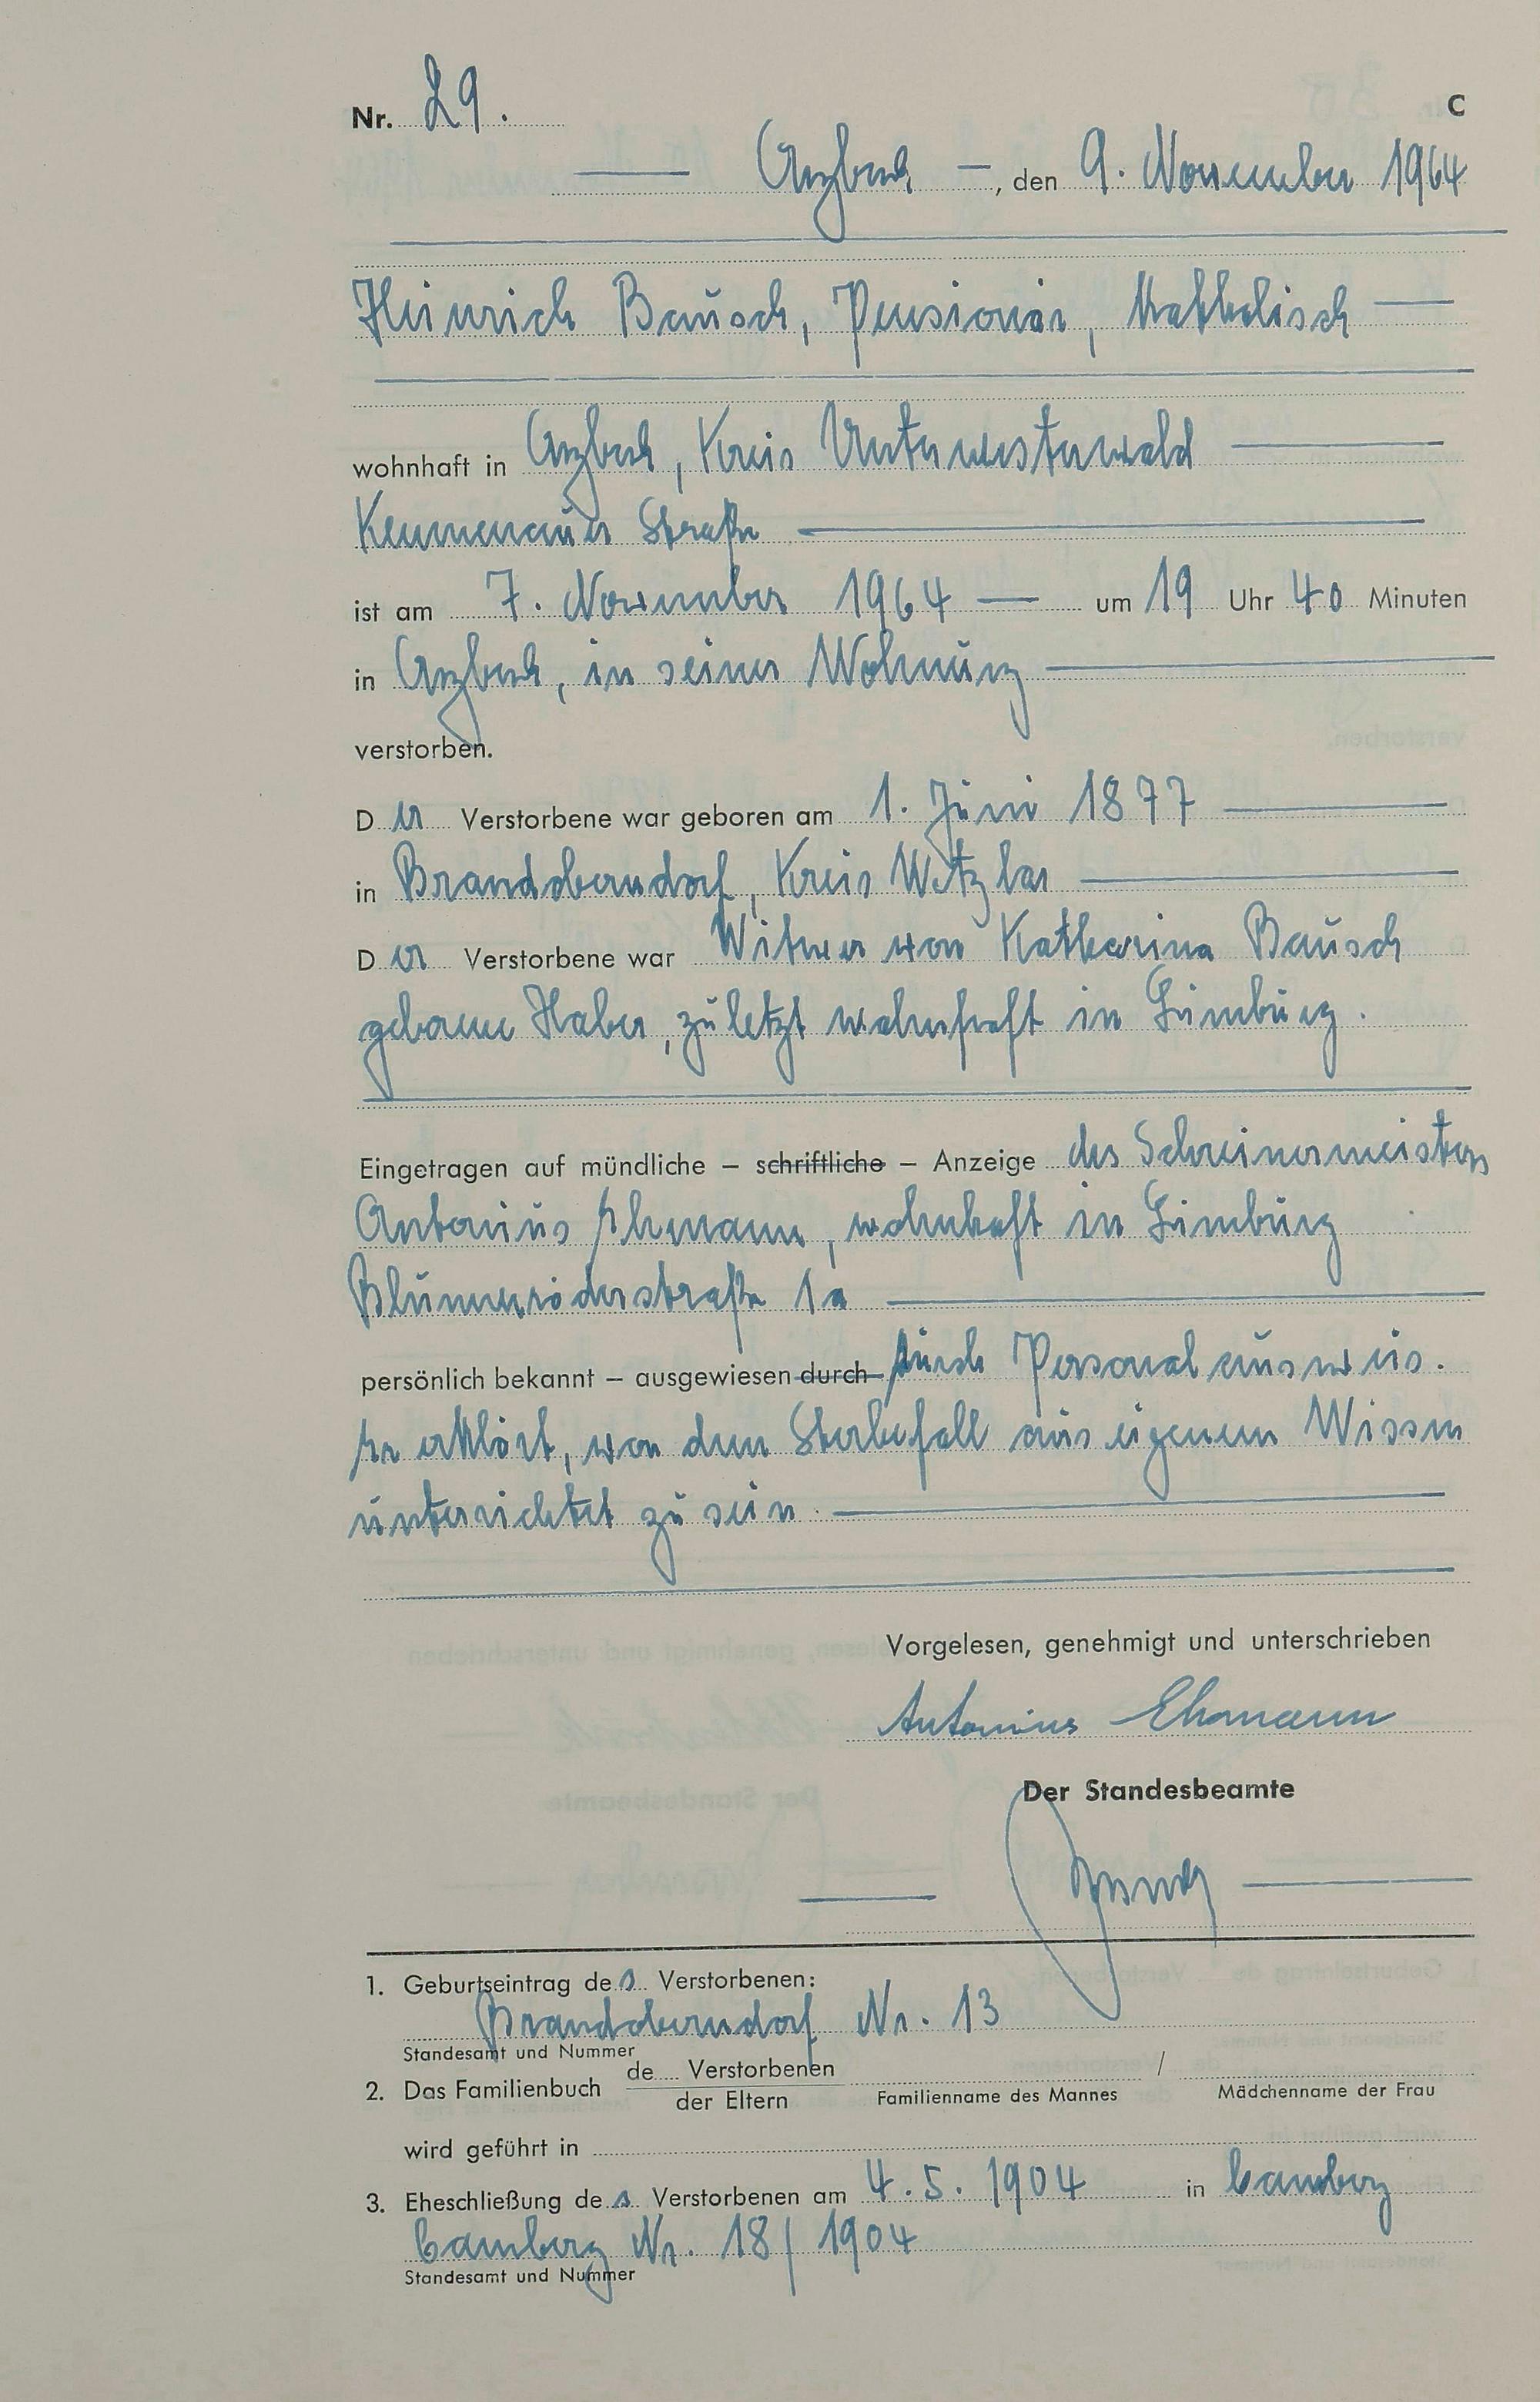 Nr. 29. C
Arzbach, den 9. November 1964
Heinrich Bausch, Pensionär, katholisch
wohnhaft in Arzbach, Kreis Unterwesterwald
Kemmenauer Straße
ist am 7. November 1964 um 19 Uhr 40 Minuten
in Arzbach, in seiner Wohnung
verstorben.
Der Verstorbene war geboren am 1. Juni 1877
in Brandoberndorf, Kreis Wetzlar
Der Verstorbene war Witwer von Katharina Bausch
geborene Haber, zuletzt wohnhaft in Limburg.
Eingetragen auf mündliche – schriftliche – Anzeige des Schreinermeisters
Antonius Ehmann, wohnhaft in Limburg
Blumenröderstraße 1a
persönlich bekannt – ausgewiesen durch durch Personalausweis.
Er erklärt, von dem Sterbefall aus eigenem Wissen
unterrichtet zu sein.
Vorgelesen, genehmigt und unterschrieben
Antonius Ehmann
Der Standesbeamte
1. Geburtseintrag des Verstorbenen:
Brandoberndorf Nr. 13
Standesamt und Nummer
2. Das Familienbuch de Verstorbenen / 
der Eltern Familienname des Mannes Mädchenname der Frau
wird geführt in
3. Eheschließung des Verstorbenen am 4.5.1904 in Camberg
Camberg Nr. 18/1904
Standesamt und Nummer